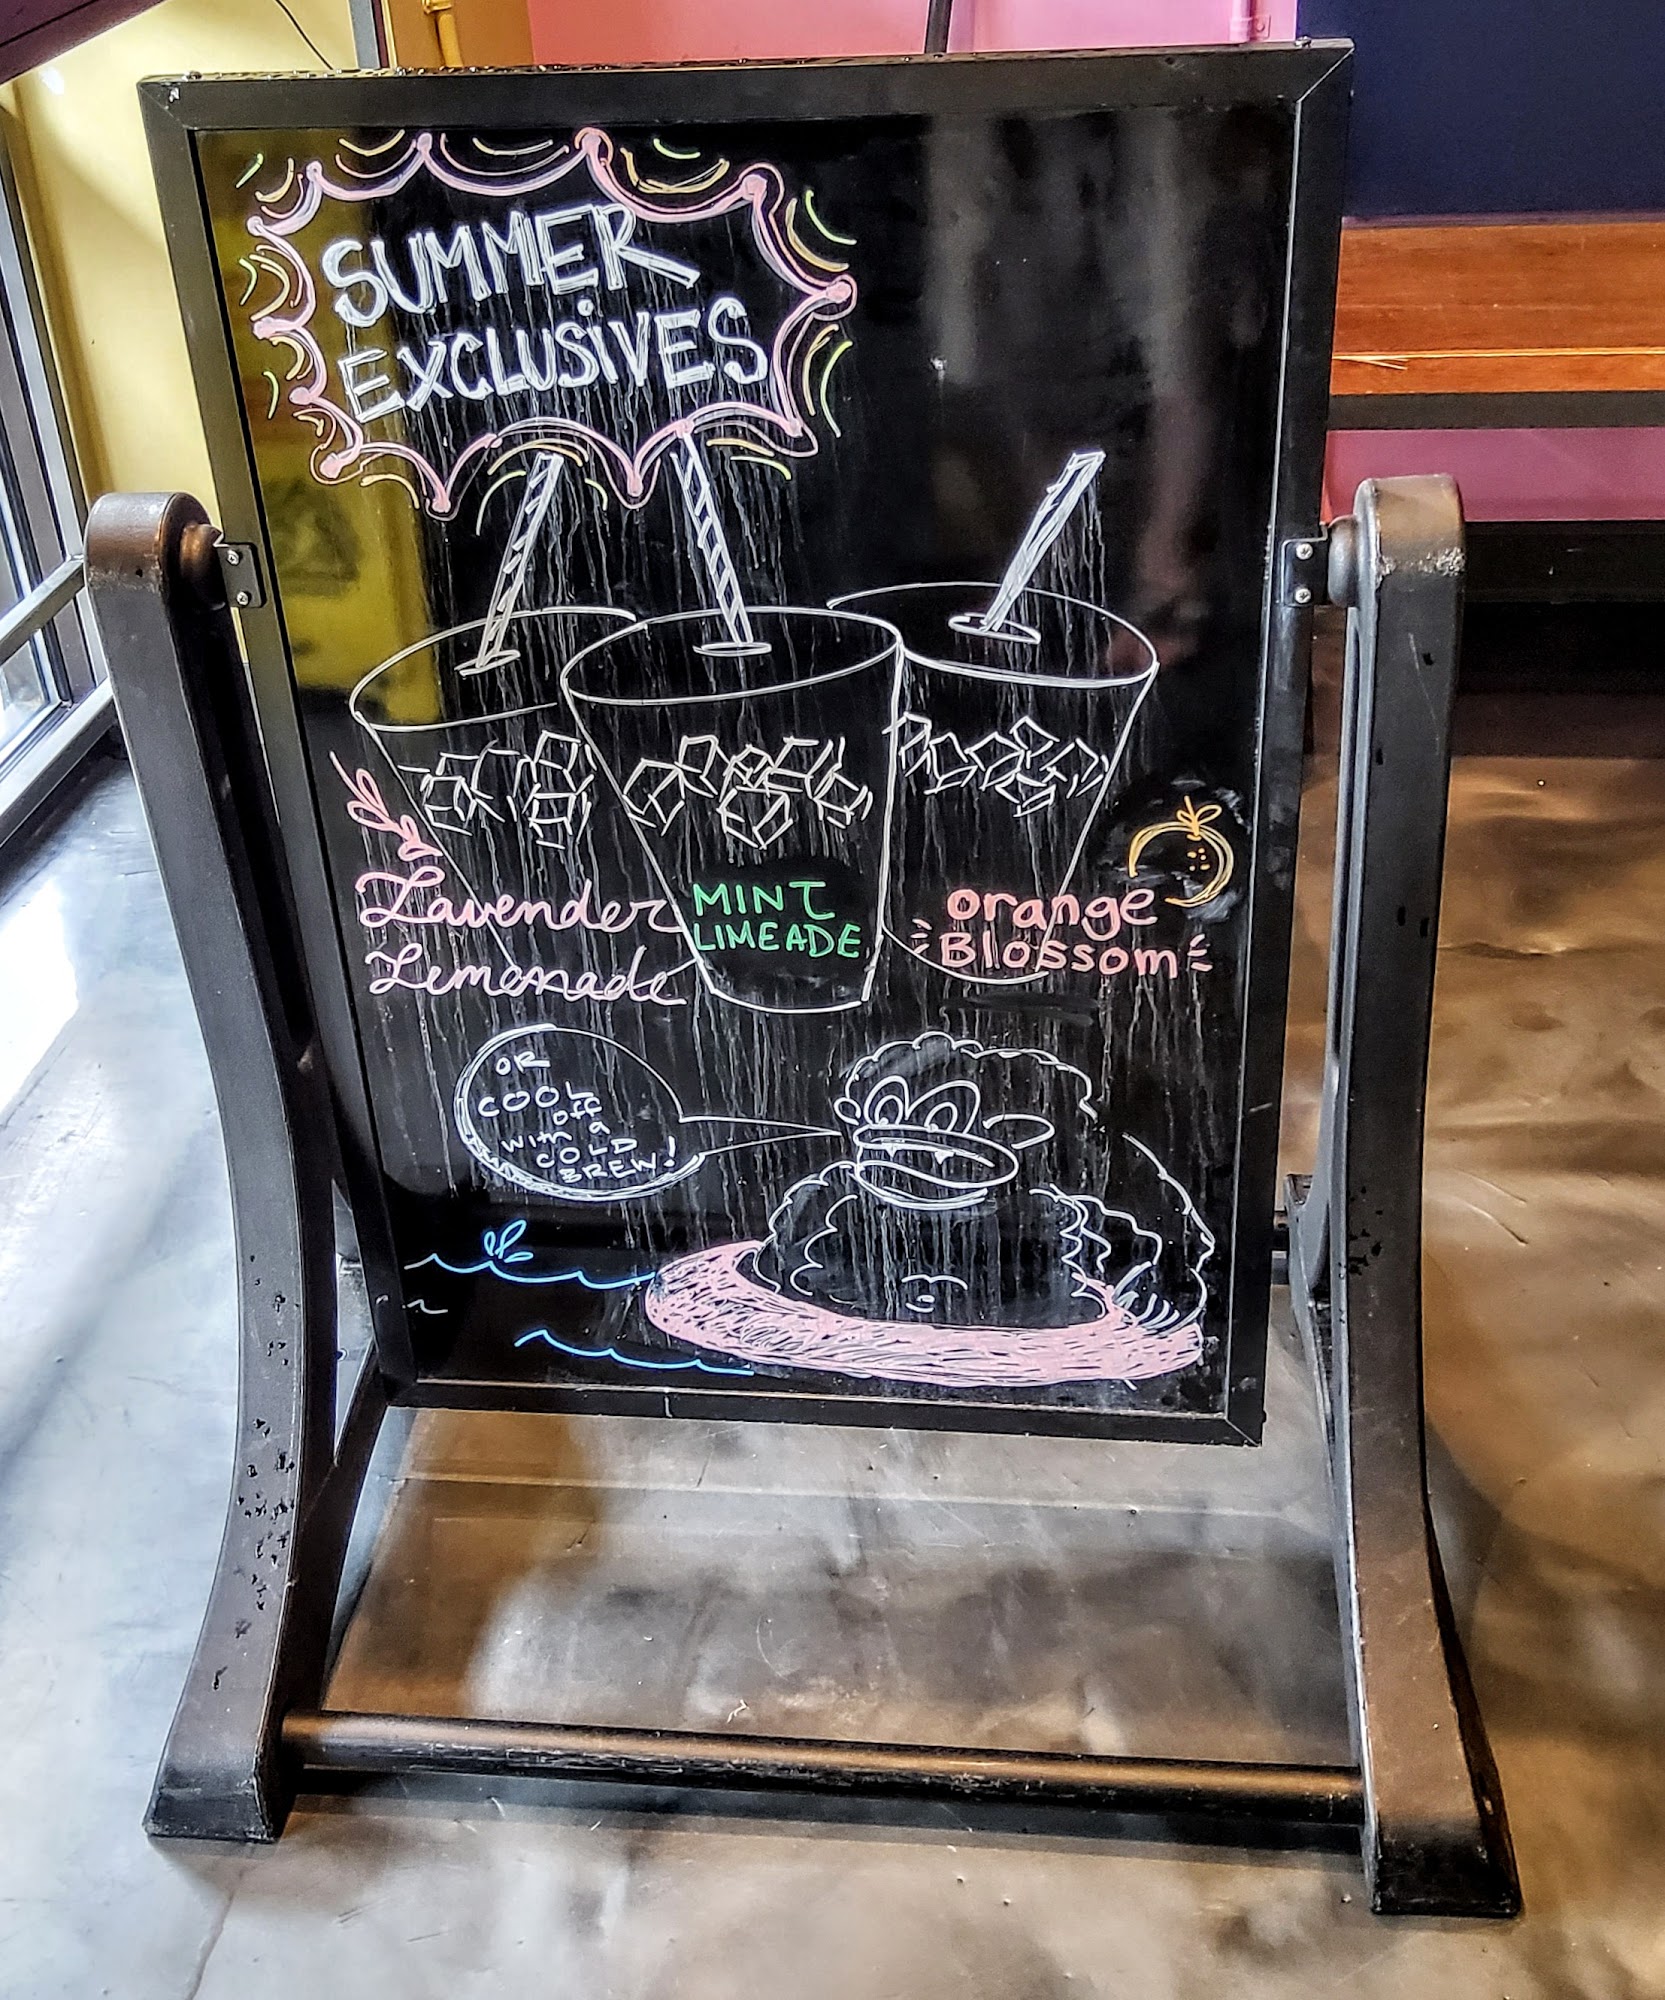 SUMMER
EXCLUSIVES
Lavender
Lemonade
MINT
LIMEADE
orange
Blossom
OR
COOL
off
with a
COLD
BREW!